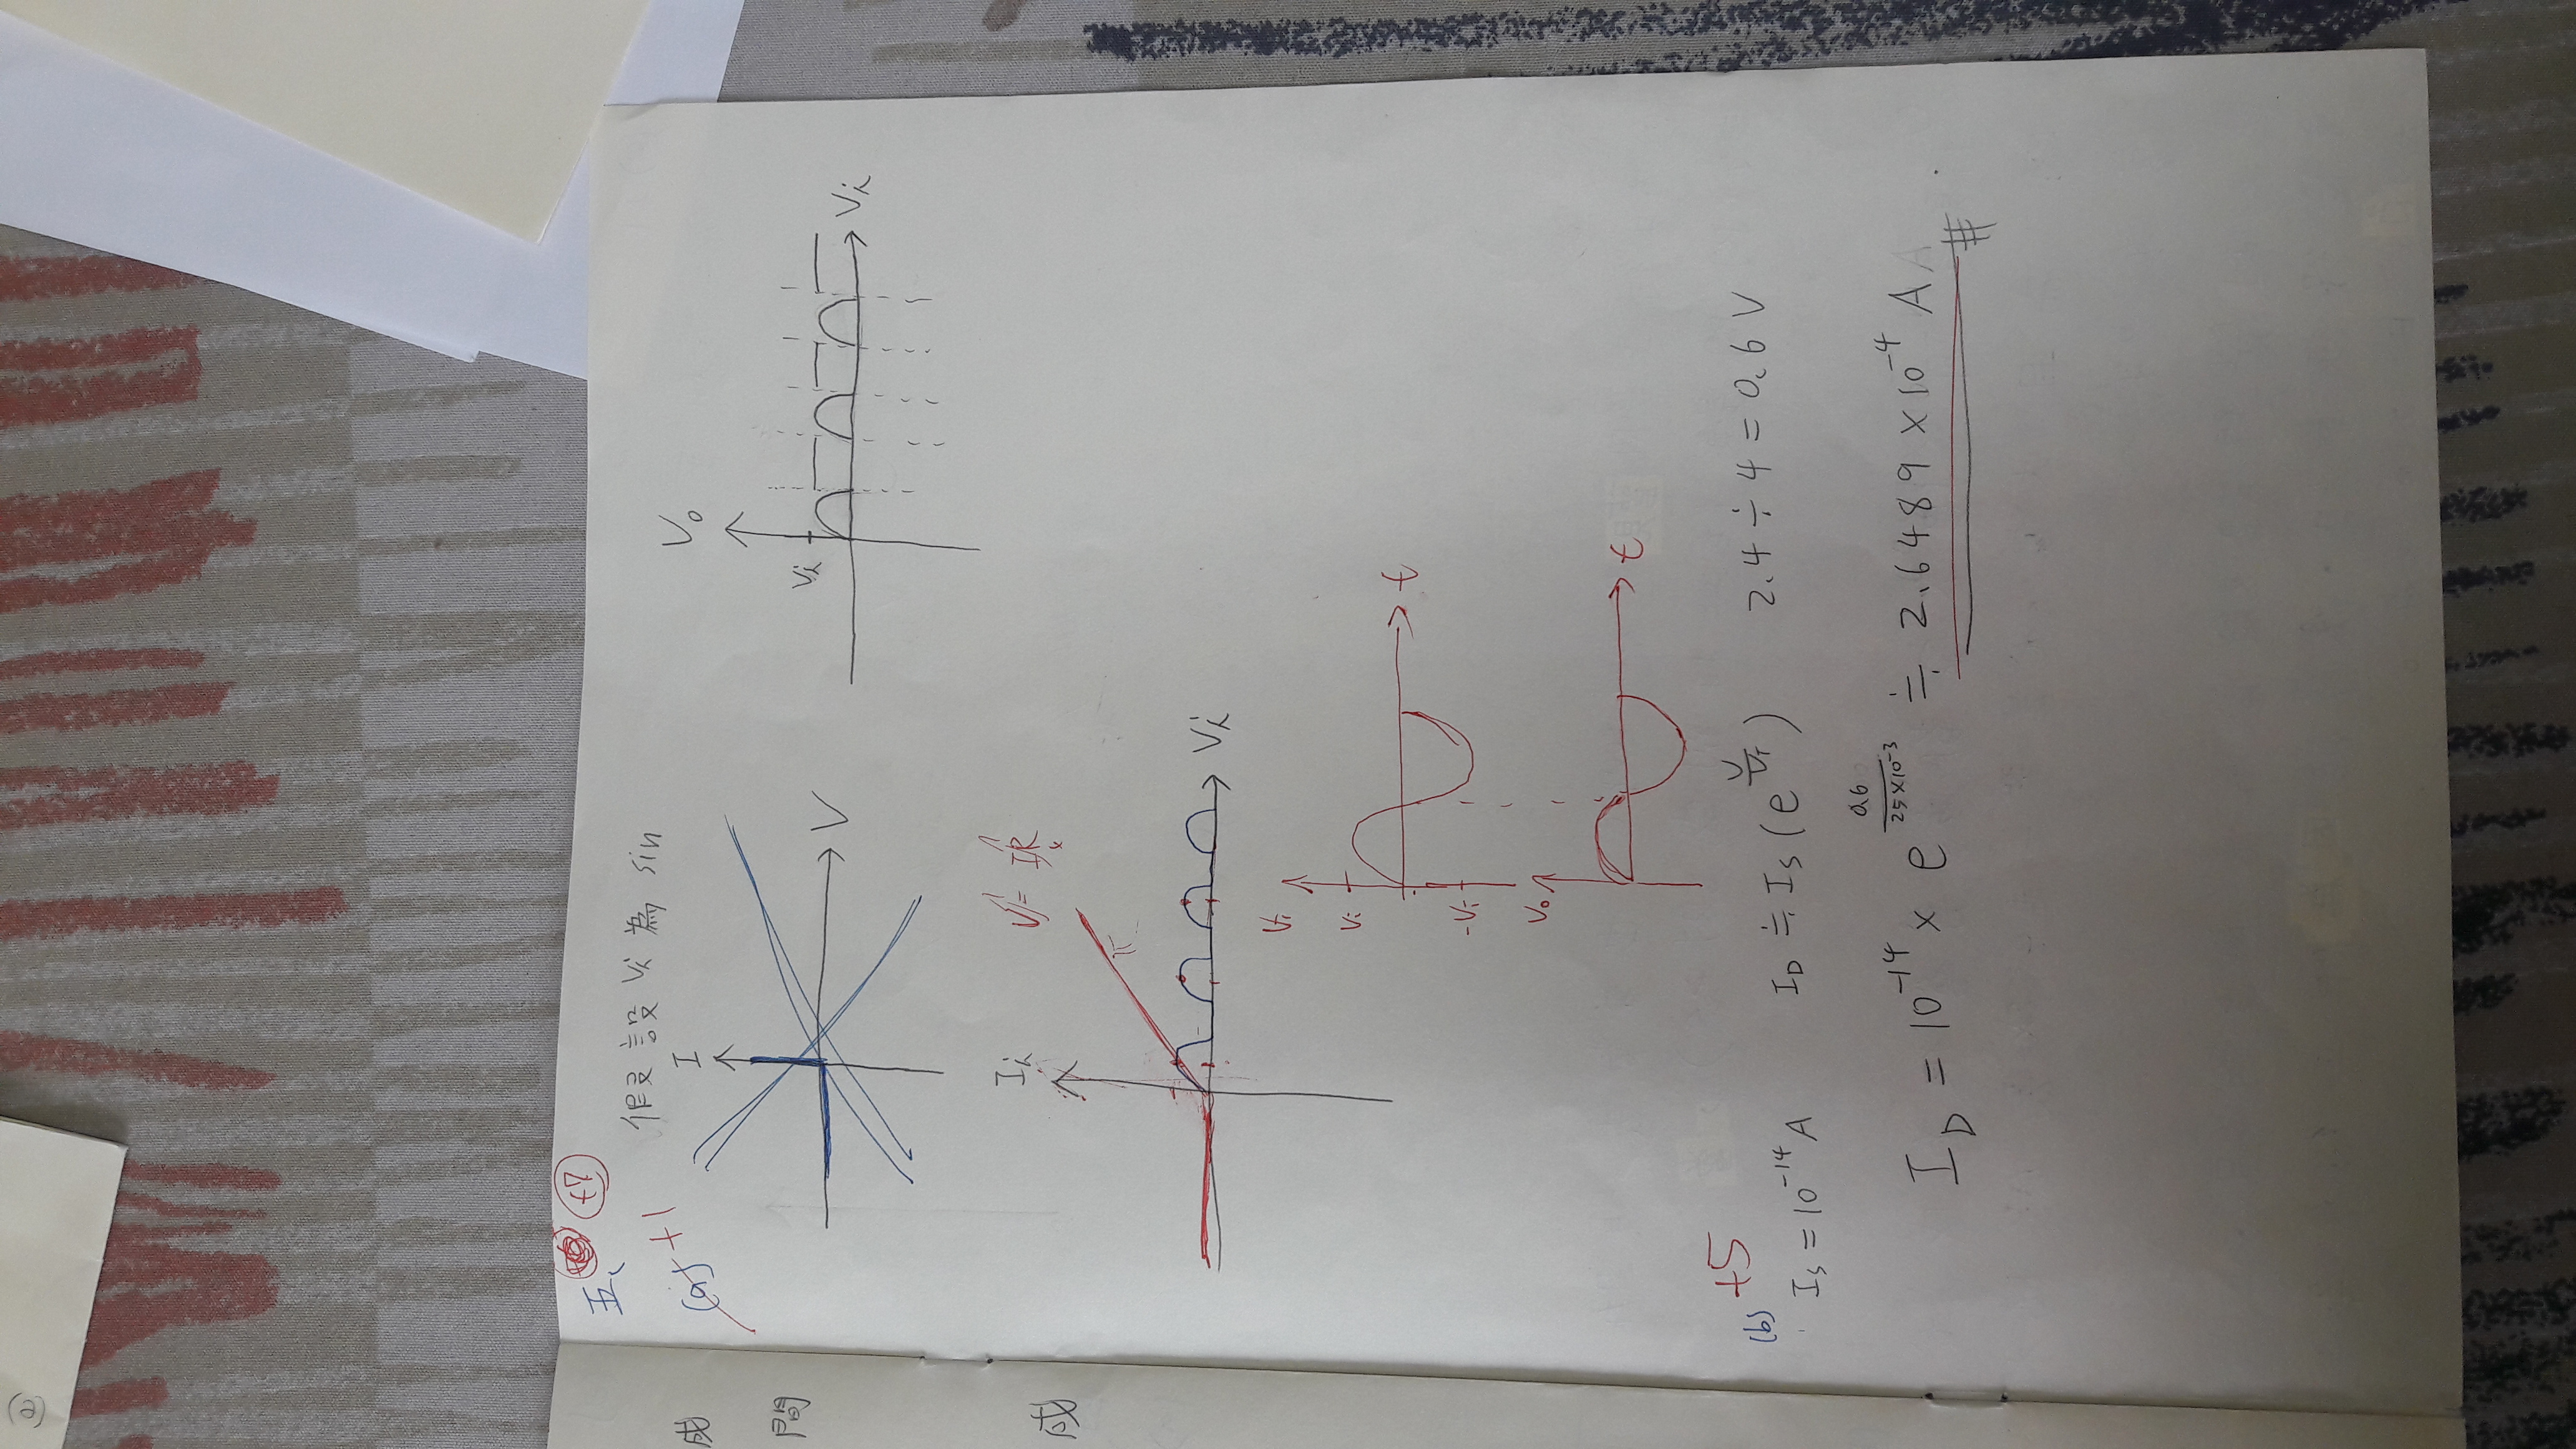 (e)
成
間
成
五、 +7
(a) +1
假設 Vi 為 sin
I
V
Vo
Vi
Vi
Ii
V = IR
Vi
Vi
Vi
-Vi
t
Vo
t
(b) +5
Is = 10⁻¹⁴ A
I_D ≒ Is (e^(V/V_T))
2.4 ÷ 4 = 0.6 V
I_D = 10⁻¹⁴ × e^(0.6/(25×10⁻³)) ≒ 2.6489 × 10⁻⁴ A #